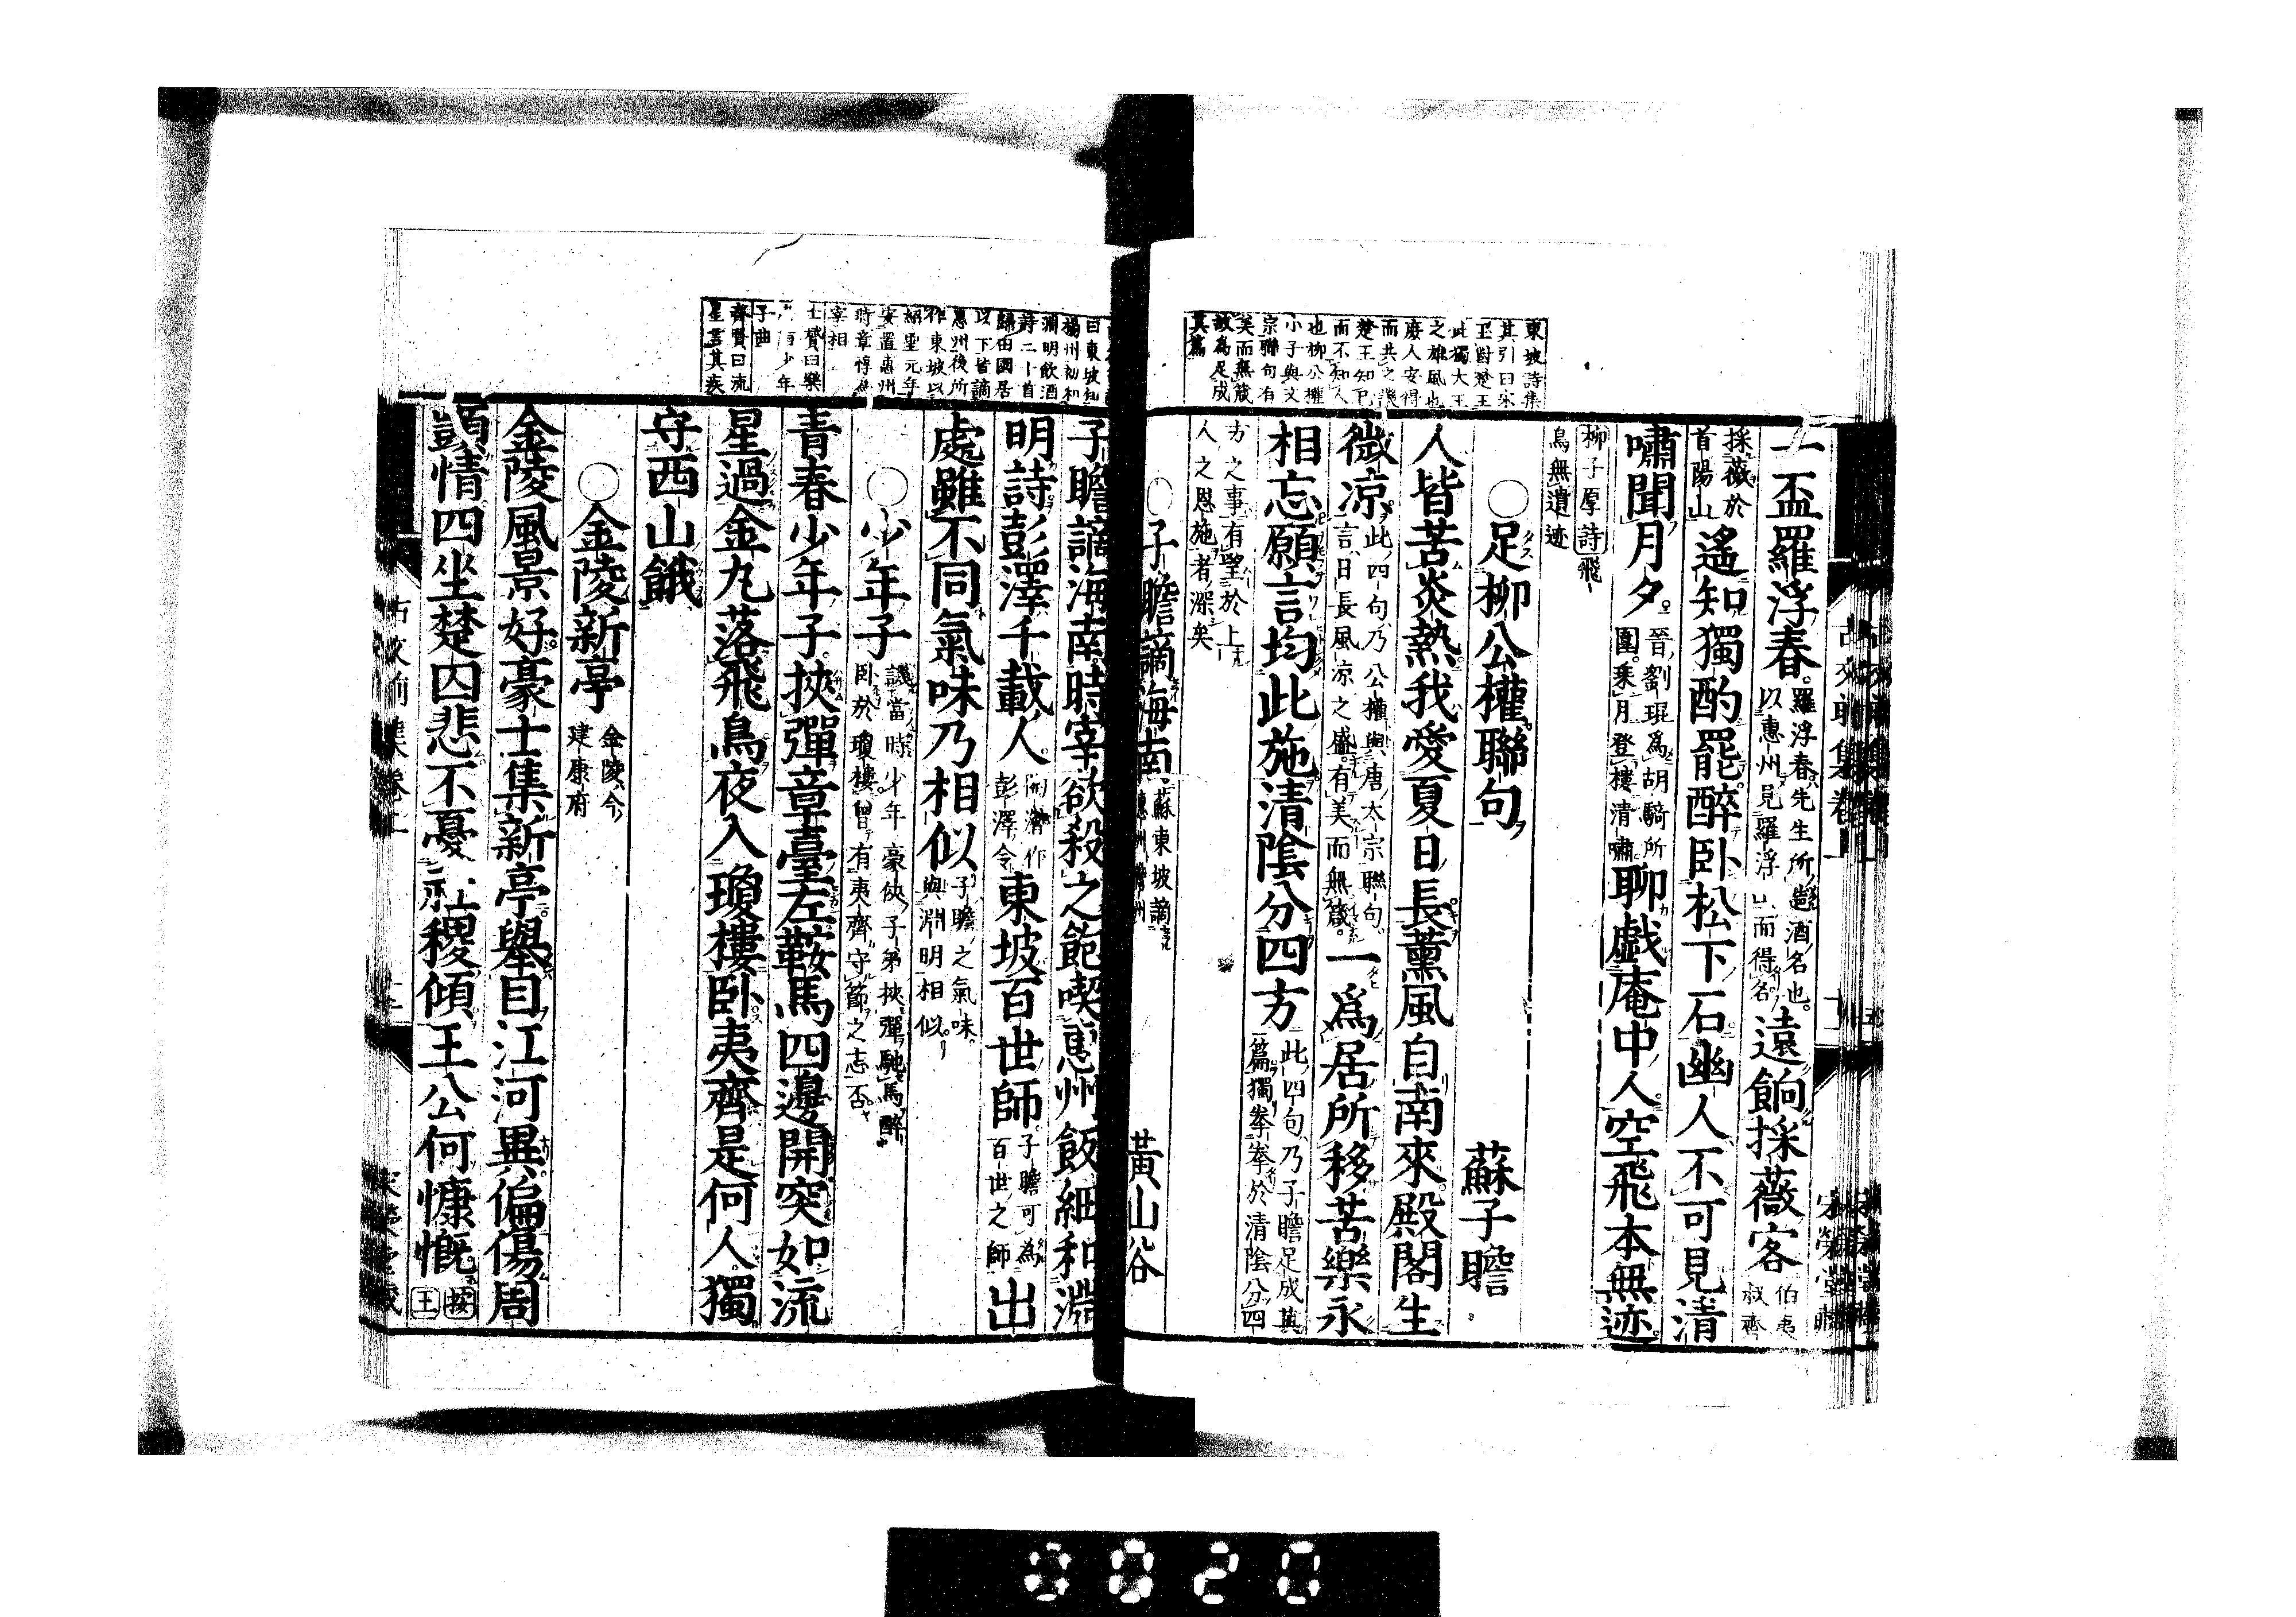 東坡詩集
其引曰宋
玉對楚王
此獨大王
之雄風也
庶人安得
而共之譏
楚王知己
而不知人
也柳公權
小子與文
宗聯句有
美而無箴
故為足成
其篇
一盃羅浮春羅浮春先生所造酒名也以惠州見羅浮山而得名遠餉採薇客伯夷叔齊
採薇於首陽山遙知獨酌罷醉卧松下石幽人不可見清
嘯聞月夕晉劉琨爲胡騎所圍乘月登樓清嘯聊戯庵中人空飛本無迹
柳子厚詩飛鳥無遺迹
○足柳公權聯句 蘇子瞻
人皆苦炎熱我愛夏日長薰風自南來殿閣生
微凉此四句乃公權與唐太宗聯句言日長風凉之盛有美而無箴一爲居所移苦樂永
相忘願言均此施清陰分四方此四句乃子瞻足成其篇獨拳拳於清陰分四
方之事有望於上人之恩施者深矣
○子瞻謫海南蘇東坡謫惠州儋州 黃山谷
曰東坡
揚州初和
淵明飲酒
詩二十首
歸田園居
以下皆謫
惠州後所
作東坡以
紹聖元年
安置惠州
時章惇為
宰相
士贇曰樂
府有少年
子曲
齊賢曰流
星言其疾
子瞻謫海南時宰欲殺之飽喫惠州飯細和淵
明詩彭澤千載人淵潛作彭澤令東坡百世師子瞻可為百世之師出
處雖不同氣味乃相似子瞻之氣味與淵明相似
○少年子譏當時少年豪俠子弟挾彈馳馬醉卧於瓊樓曾有夷齊守節之志否
青春少年子挾彈章臺左鞍馬四邊開突如流
星過金丸落飛鳥夜入瓊樓卧夷齊是何人獨
守西山餓
○金陵新亭金陵今建康府
金陵風景好豪士集新亭舉目江河異偏傷周
顗情四坐楚囚悲不憂社稷傾王公何慷慨按王
0020